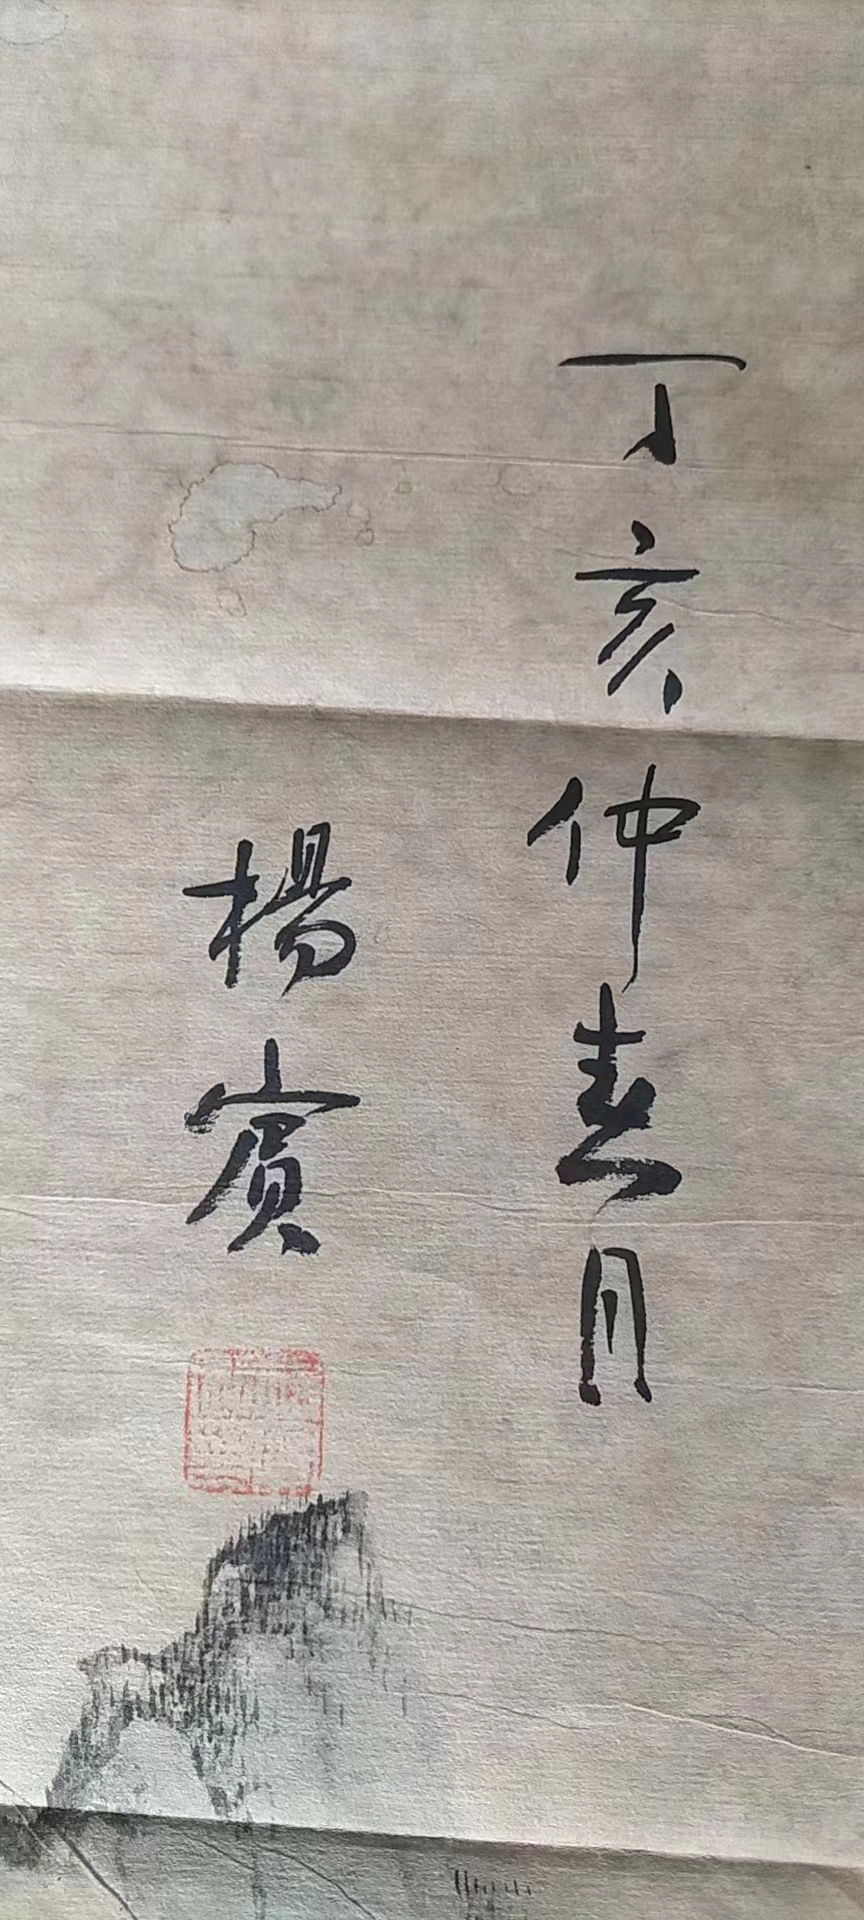 丁亥仲春月
楊賓